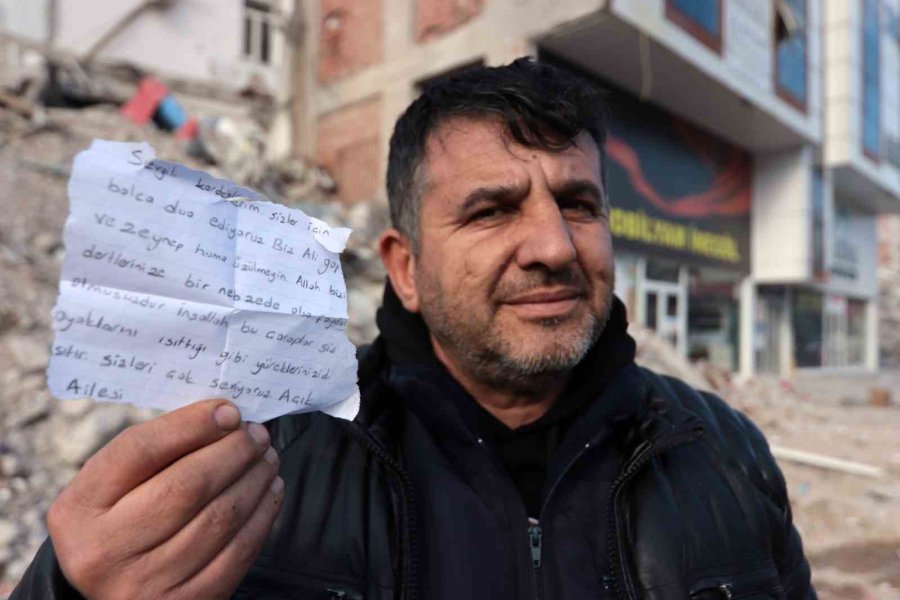 Sevgili kardeşlerim sizler için
bolca dua ediyoruz Biz Ali
ve zeynep huma üzülmeyin Allah bizi
dertlerinize bir nebzede olsa
etmuşuzdur İnşallah bu çoraplar siz
ayaklarını ısıttığı gibi yüreklerinizid
ısıtır sizleri çok seviyoruz Açık
Ailesi